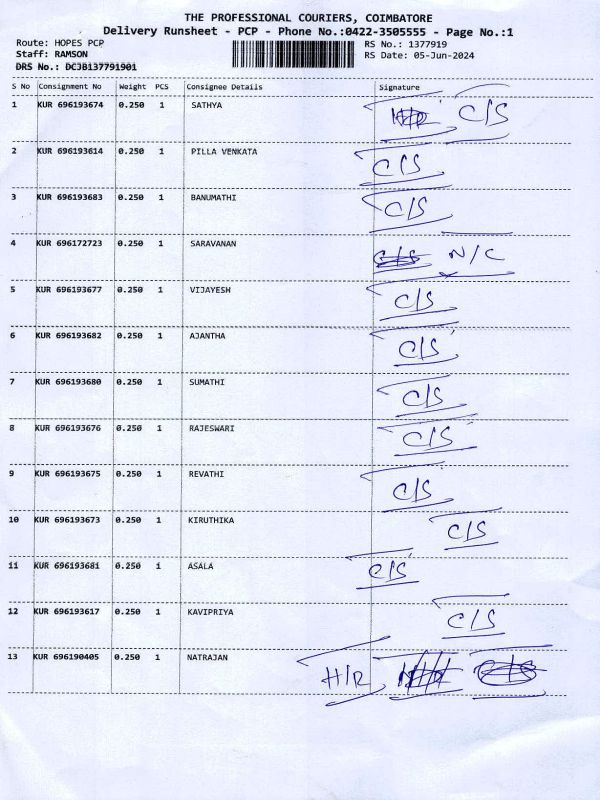 THE PROFESSIONAL COURIERS, COIMBATORE
Delivery Runsheet - PCP - Phone No.:0422-3505555 - Page No.:1
Route: HOPES PCP RS No.: 1377919
Staff: RAMSON RS Date: 05-Jun-2024
DRS No.: DCJB137791901
S No Consignment No Weight PCS Consignee Details Signature
1 KUR 696193674 0.250 1 SATHYA C/S
2 KUR 696193614 0.250 1 PILLA VENKATA C/S
3 KUR 696193683 0.250 1 BANUMATHI C/S
4 KUR 696172723 0.250 1 SARAVANAN C/S N/C
5 KUR 696193677 0.250 1 VIJAYESH C/S
6 KUR 696193682 0.250 1 AJANTHA C/S
7 KUR 696193680 0.250 1 SUMATHI C/S
8 KUR 696193676 0.250 1 RAJESWARI C/S
9 KUR 696193675 0.250 1 REVATHI C/S
10 KUR 696193673 0.250 1 KIRUTHIKA C/S
11 KUR 696193681 0.250 1 ASALA C/S
12 KUR 696193617 0.250 1 KAVIPRIYA C/S
13 KUR 696190405 0.250 1 NATRAJAN H/R